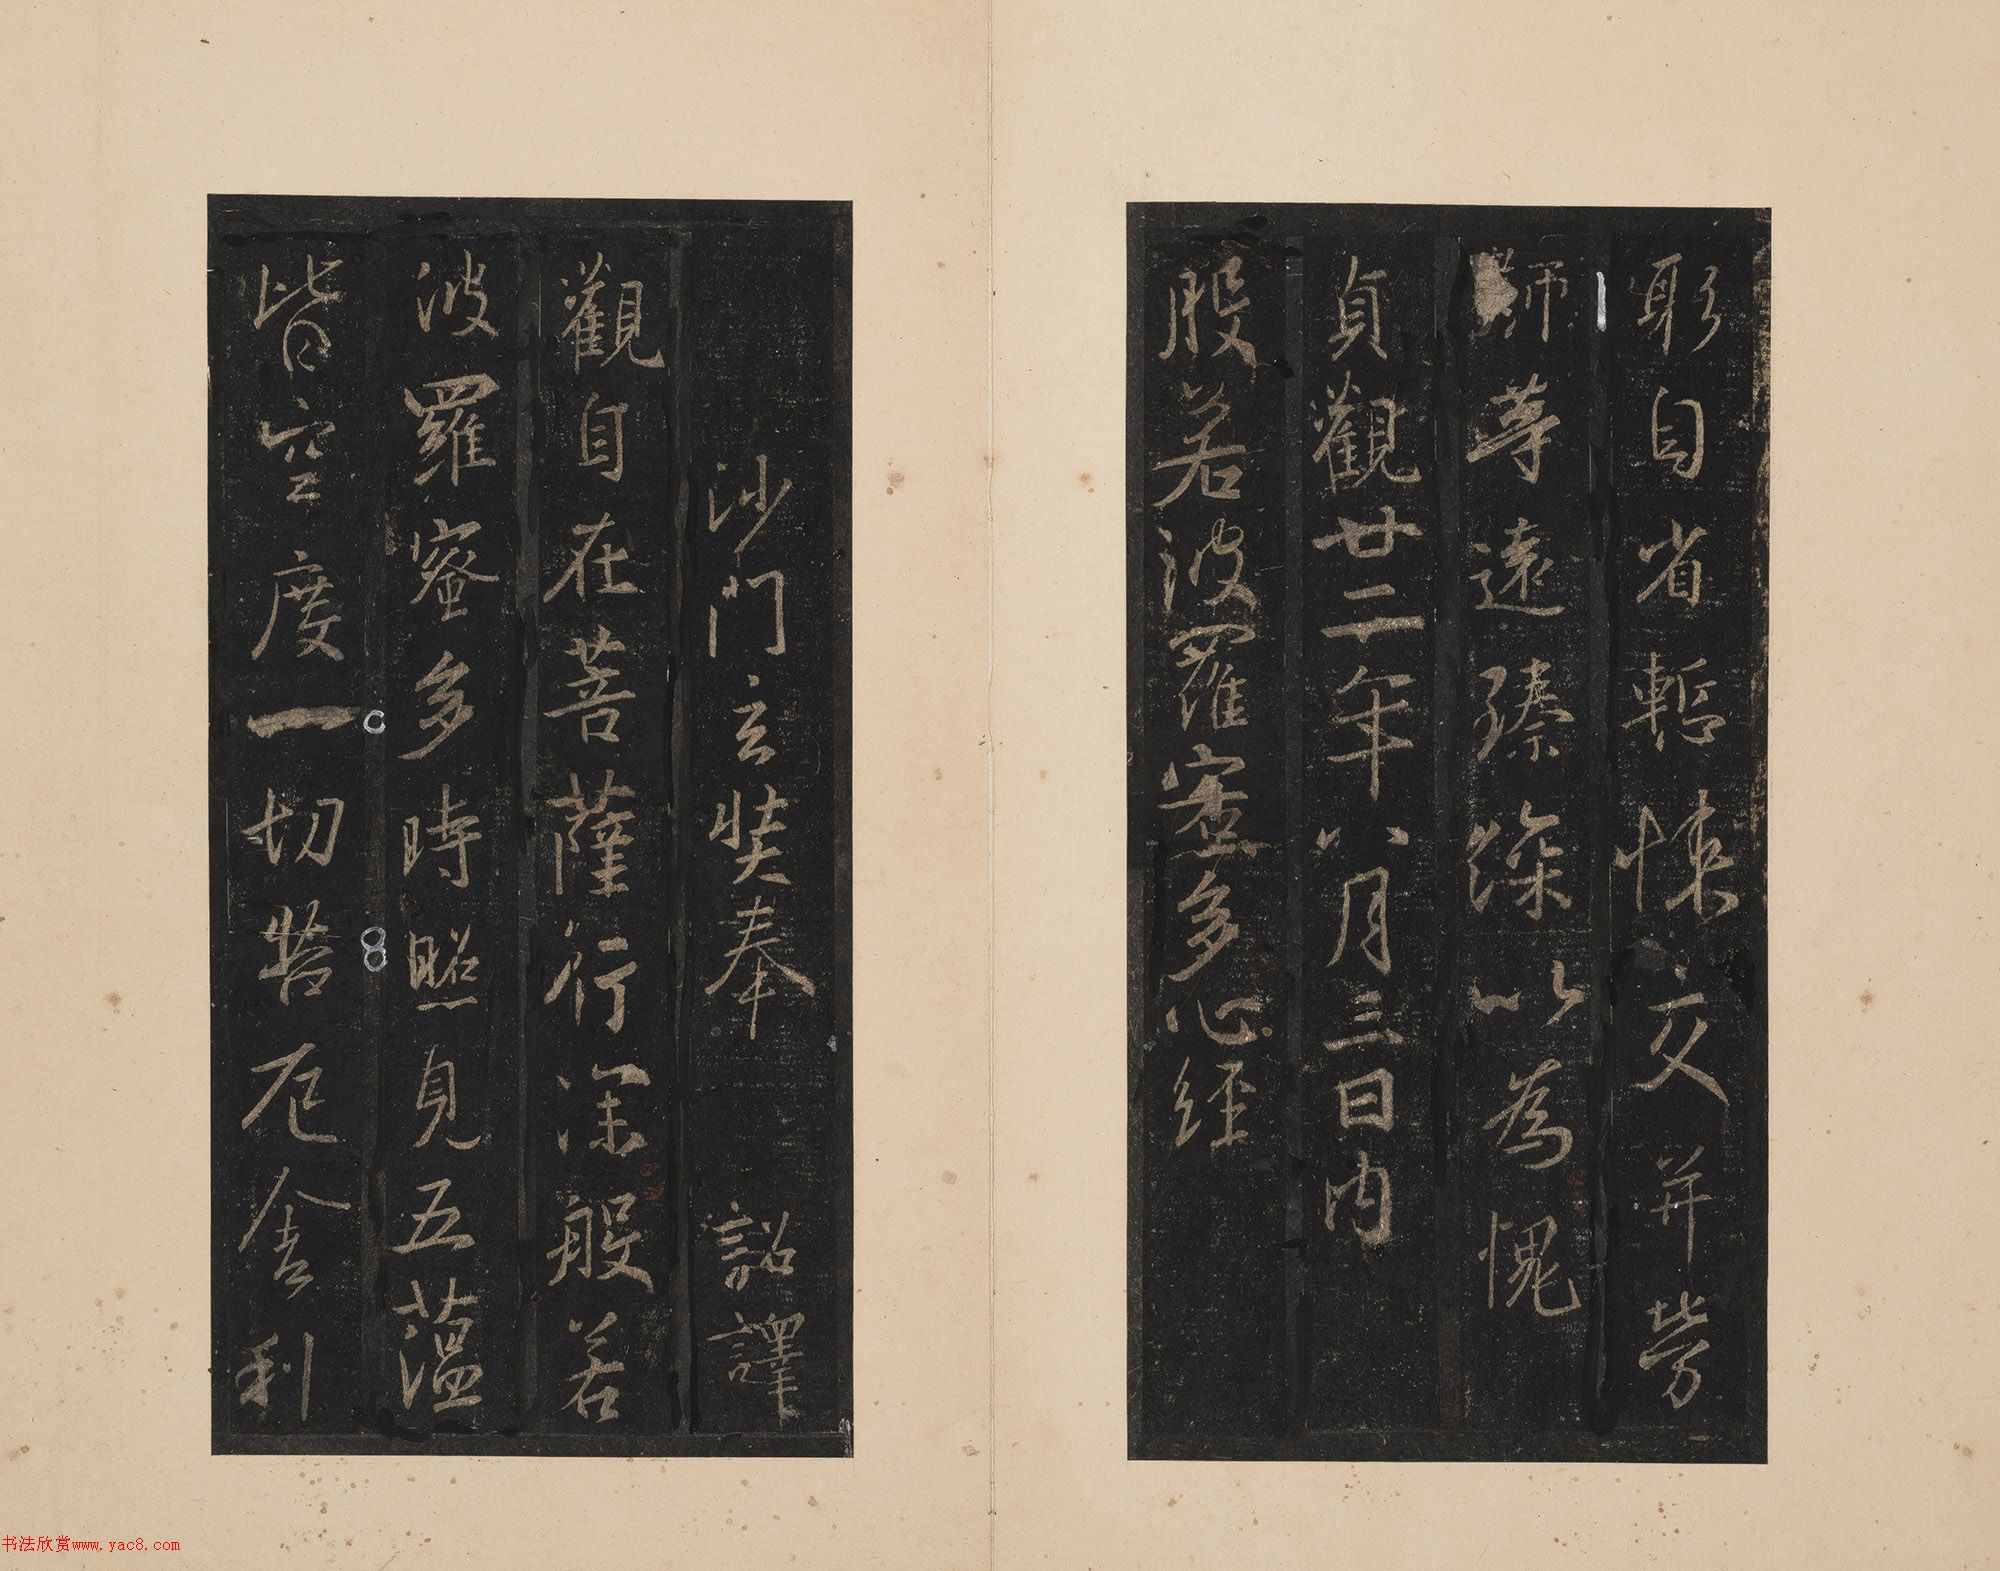 躬自省慙悚交并勞
師等遠臻深以為愧
貞觀廿二年八月三日內
般若波羅蜜多心經
沙門玄奘奉 詔譯
觀自在菩薩行深般若
波羅蜜多時照見五蘊
皆空度一切苦厄舍利
书法欣赏www.yac8.com